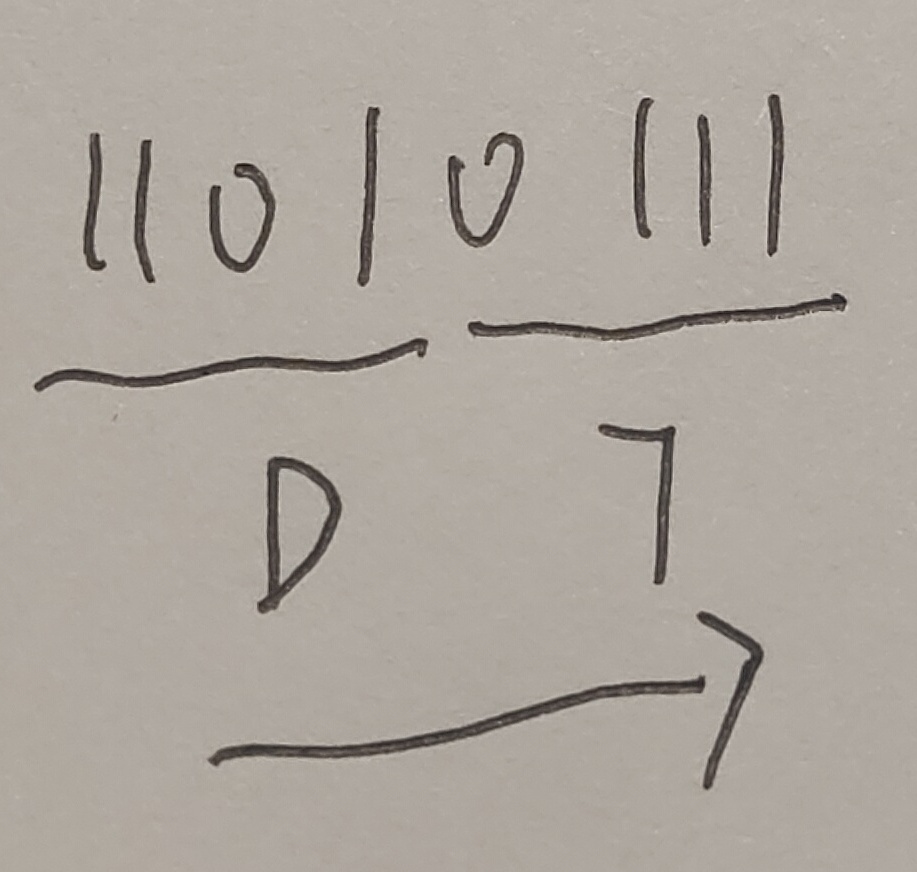 1101 0111
D 7
→